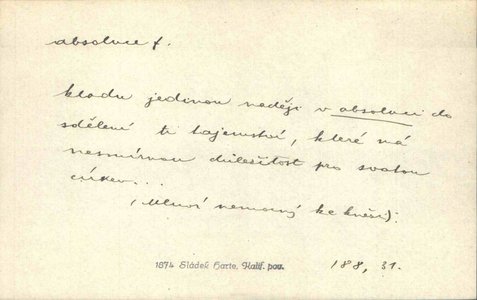 absoluce f.
kladu jedinou naději v absoluci do
sdělení ti tajemství, které má
nesmírnou důležitost pro svatou
církev...
(Mluví nemocný ke knězi).
1874 Sládek Harte, Kalif. pov. 188, 31.